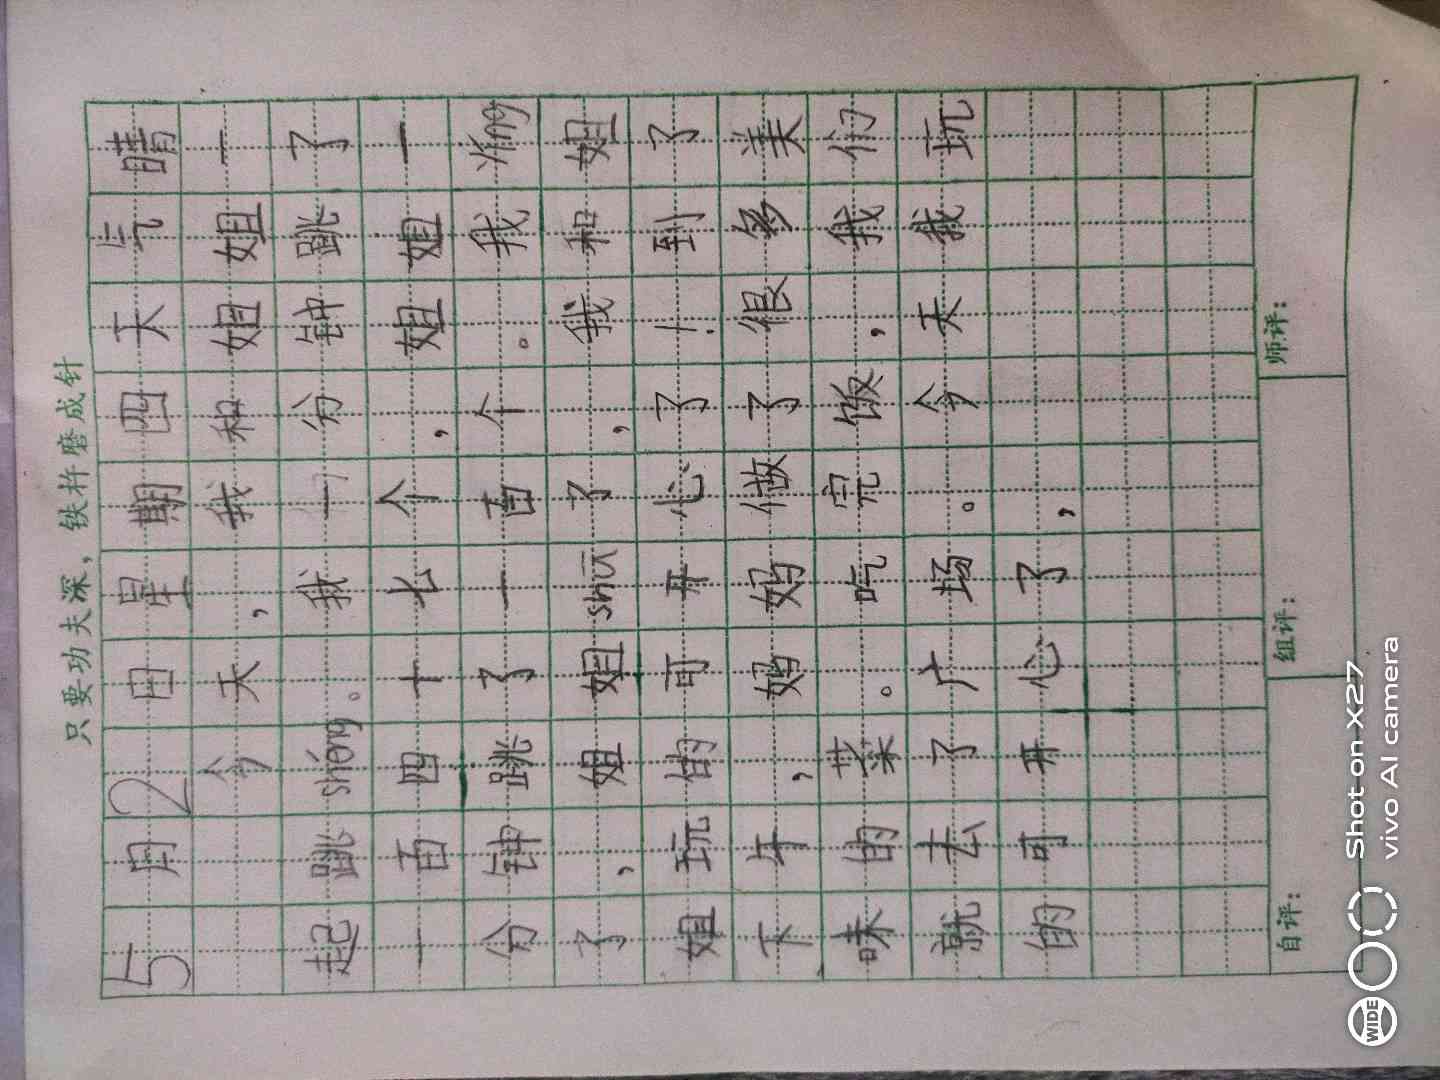 只要功夫深，铁杵磨成针
5月2日星期四天气晴
今天，我和姐姐一
起跳shéng。我一分钟跳了
一百四十七个，姐姐一
分钟跳了一百个。我yíng
了，姐姐shū了，我和姐
姐玩的可开心了！到了
下午，妈妈做了很多美
味的菜。吃完饭，我们
就去了广场。今天我玩
的可开心了，
自评： 组评： 师评：
Shot on X27
vivo AI camera
WIDE